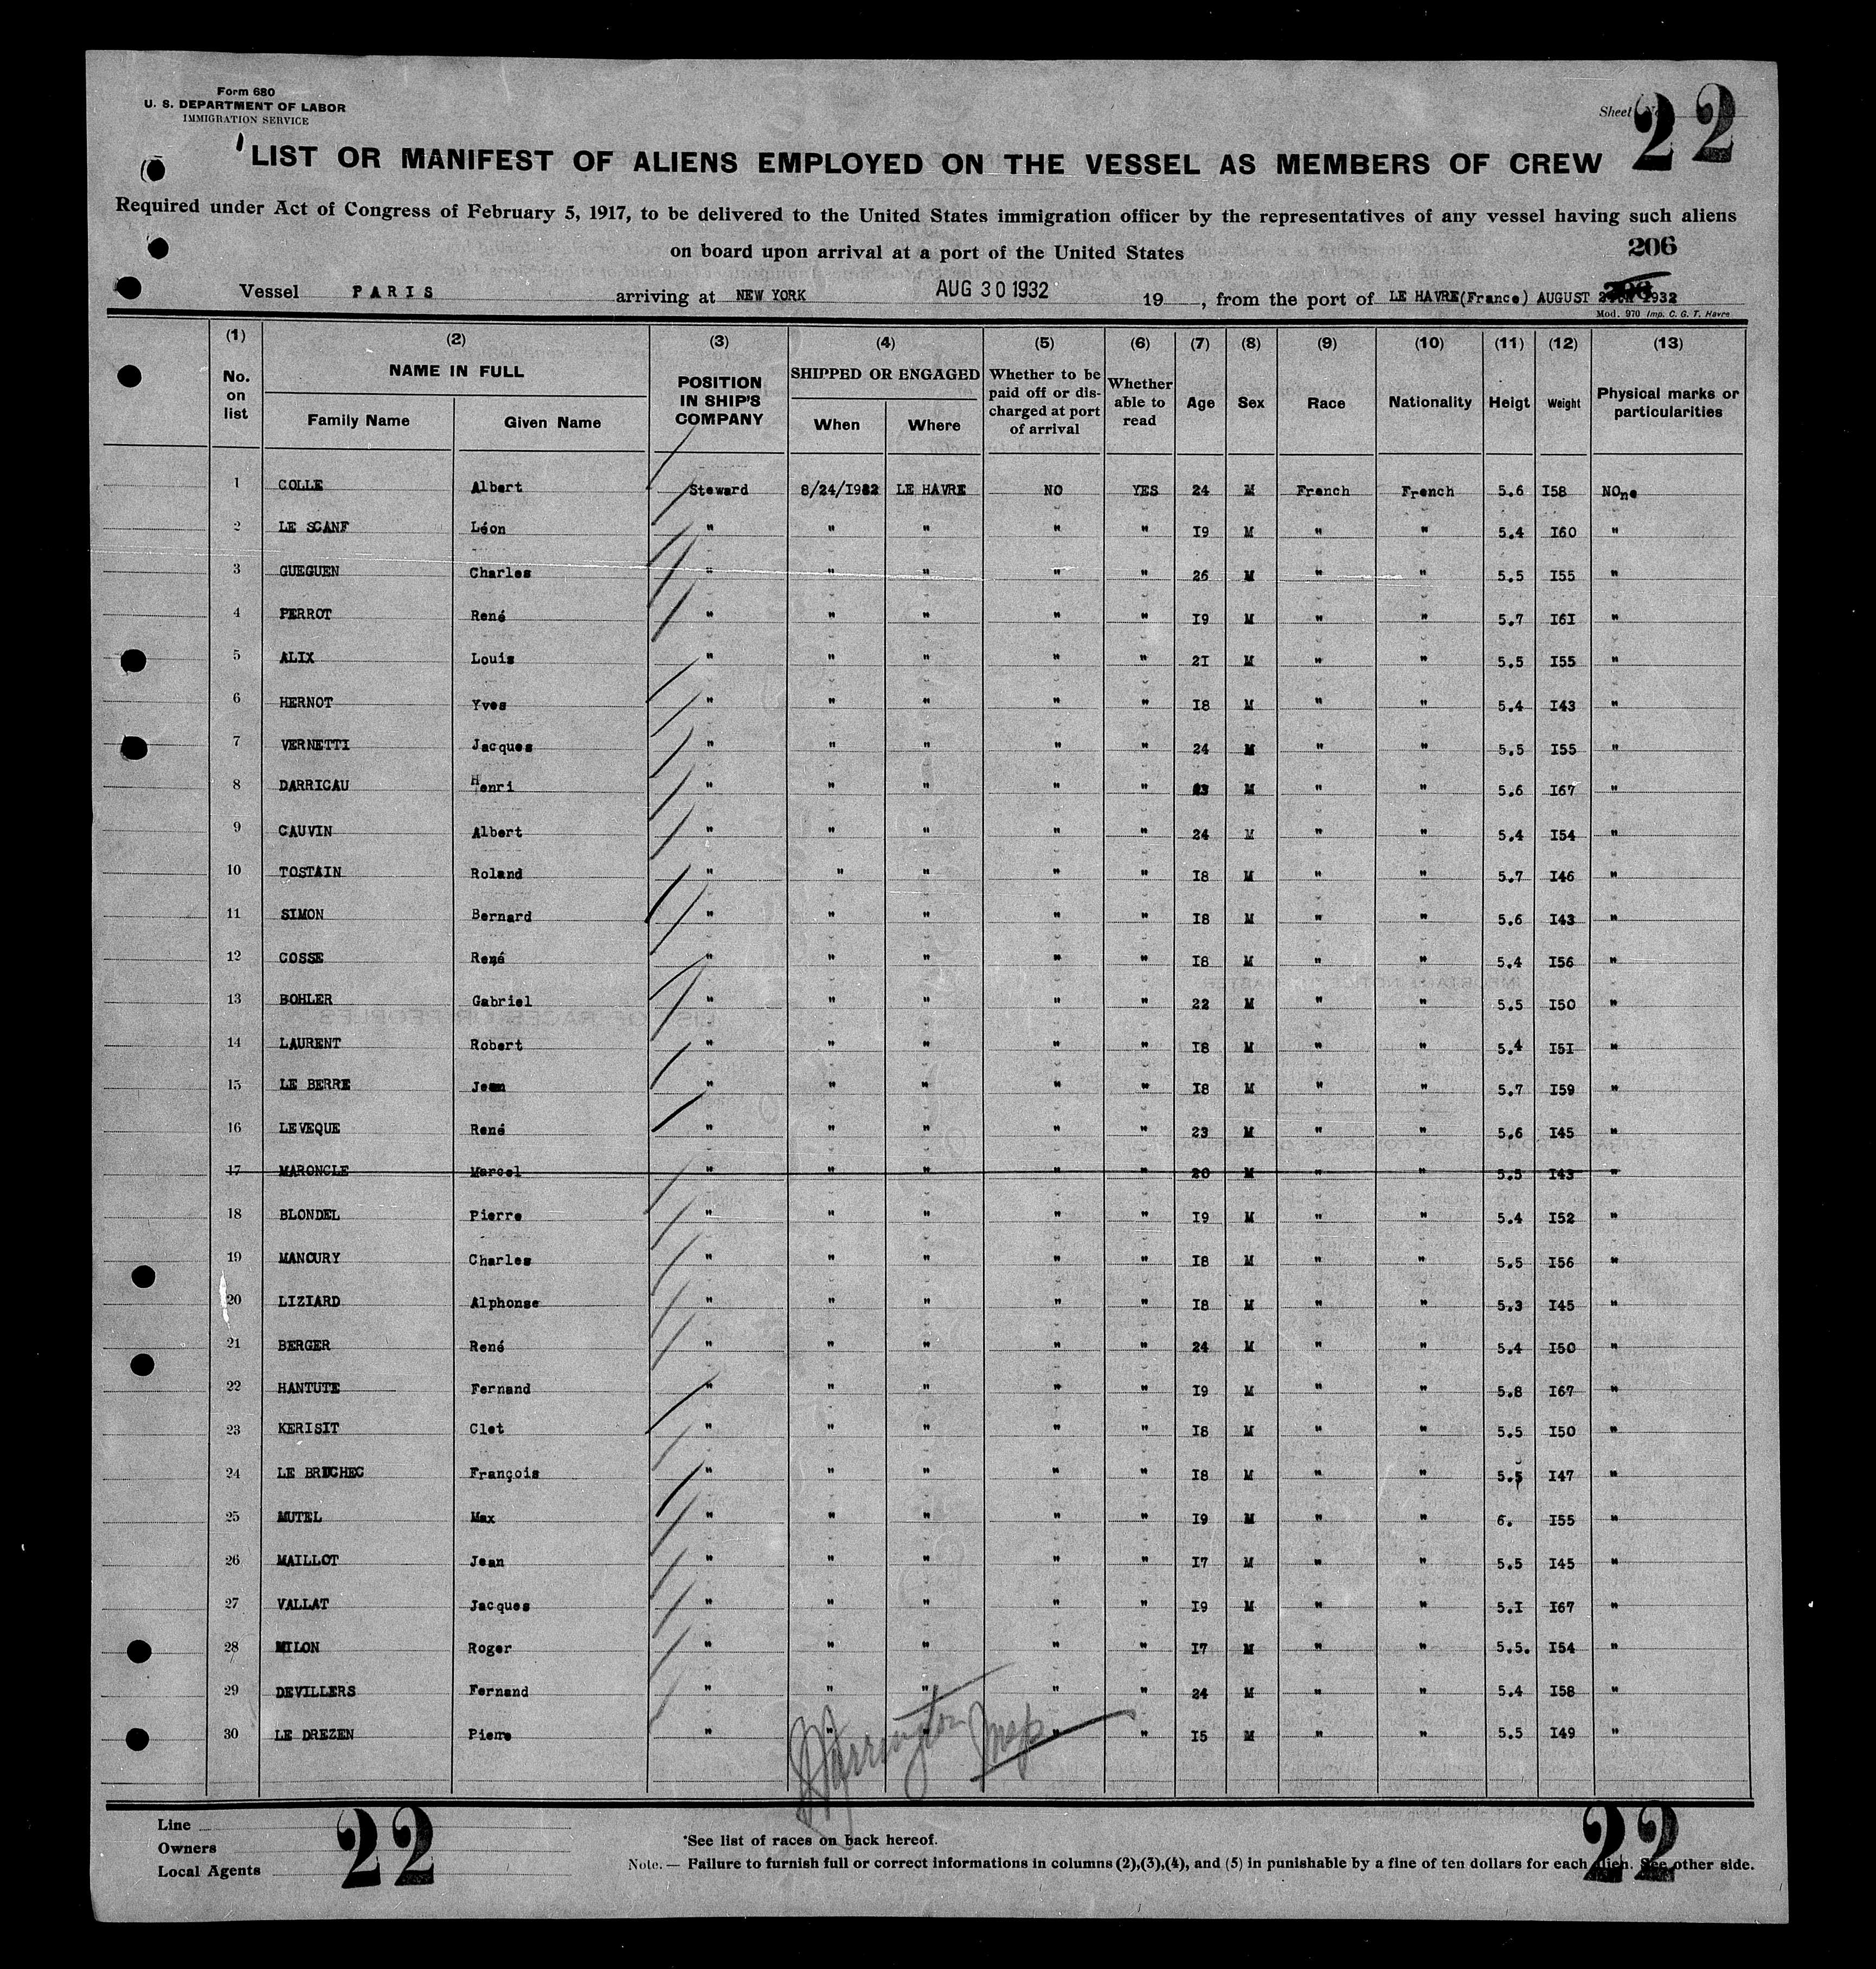 Form 680
U. S. DEPARTMENT OF LABOR
IMMIGRATION SERVICE
Sheet 22
LIST OR MANIFEST OF ALIENS EMPLOYED ON THE VESSEL AS MEMBERS OF CREW
Required under Act of Congress of February 5, 1917, to be delivered to the United States immigration officer by the representatives of any vessel having such aliens
on board upon arrival at a port of the United States
206
Vessel PARIS arriving at NEW YORK AUG 30 1932 19 , from the port of LE HAVRE(France) AUGUST 1932
Mod. 970 Imp. C. G. T. Havre
(1) (2) (3) (4) (5) (6) (7) (8) (9) (10) (11) (12) (13)
No. on list NAME IN FULL Family Name Given Name POSITION IN SHIP'S COMPANY SHIPPED OR ENGAGED When Where Whether to be paid off or discharged at port of arrival Whether able to read Age Sex Race Nationality Heigt Weight Physical marks or particularities
1 COLLE Albert Steward 8/24/1932 LE HAVRE NO YES 24 M French French 5.6 I58 NOne
2 LE SCANF Léon " " " " " I9 M " " 5.4 I60 "
3 GUEGUEN Charles " " " " " 26 M " " 5.5 I55 "
4 PERROT René " " " " " I9 M " " 5.7 I6I "
5 ALIX Louis " " " " " 2I M " " 5.5 I55 "
6 HERNOT Yves " " " " " I8 M " " 5.4 I43 "
7 VERNETTI Jacques " " " " " 24 M " " 5.5 I55 "
8 DARRICAU Henri " " " " " M " " 5.6 I67 "
9 CAUVIN Albert " " " " " 24 M " " 5.4 I54 "
10 TOSTAIN Roland " " " " " I8 M " " 5.7 I46 "
11 SIMON Bernard " " " " " I8 M " " 5.6 I43 "
12 COSSE René " " " " " I8 M " " 5.4 I56 "
13 BOHLER Gabriel " " " " " 22 M " " 5.5 I50 "
14 LAURENT Robert " " " " " I8 M " " 5.4 I5I "
15 LE BERRE Jean " " " " " I8 M " " 5.7 I59 "
16 LEVEQUE René " " " " " 23 M " " 5.6 I45 "
17 MARONCLE Marcel " " " " " 20 M " " 5.5 I43 "
18 BLONDEL Pierre " " " " " I9 M " " 5.4 I52 "
19 MANOURY Charles " " " " " I8 M " " 5.5 I56 "
20 LIZIARD Alphonse " " " " " I8 M " " 5.3 I45 "
21 BERGER René " " " " " 24 M " " 5.4 I50 "
22 HANTUTE Fernand " " " " " I9 M " " 5.8 I67 "
23 KERISIT Clet " " " " " I8 M " " 5.5 I50 "
24 LE BRUCHEC François " " " " " I8 M " " 5.5 I47 "
25 MUTEL Max " " " " " I9 M " " 6. I55 "
26 MAILLOT Jean " " " " " I7 M " " 5.5 I45 "
27 VALLAT Jacques " " " " " I9 M " " 5.I I67 "
28 MILON Roger " " " " " I7 M " " 5.5. I54 "
29 DEVILLERS Fernand " " " " " 24 M " " 5.4 I58 "
30 LE DREZEN Pierre " " " " " I5 M " " 5.5 I49 "
Line
Owners
Local Agents
22
*See list of races on back hereof.
Note. — Failure to furnish full or correct informations in columns (2),(3),(4), and (5) in punishable by a fine of ten dollars for each alien. See other side.
22